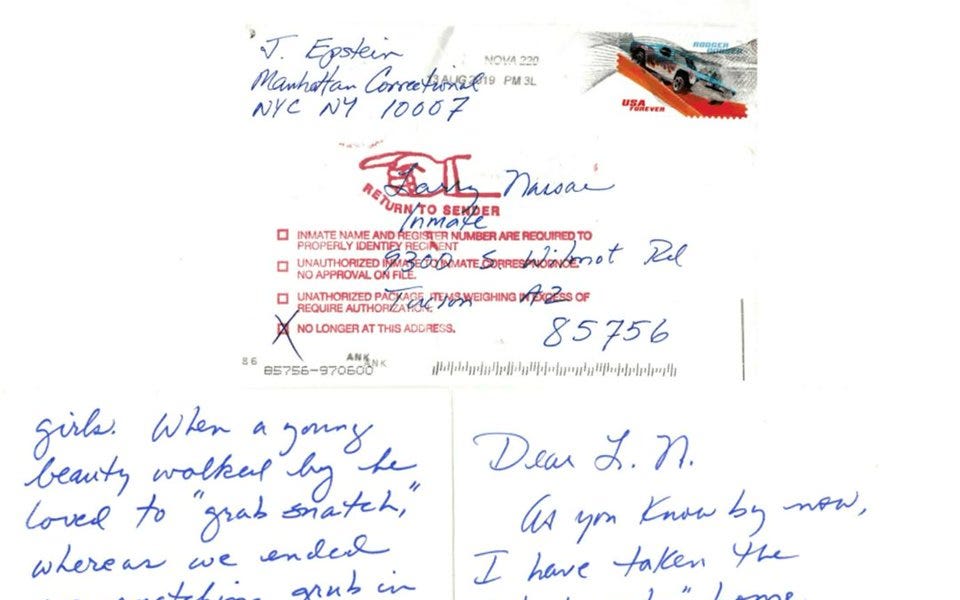 J. Epstein
Manhattan Correctional
NYC NY 10007
NOVA 220
13 AUG 2019 PM 3L
RODGER
USA
FOREVER
RETURN TO SENDER
Larry Nassar
Inmate
9300 S. Wilmot Rd
Tucson AZ
85756
INMATE NAME AND REGISTER NUMBER ARE REQUIRED TO
PROPERLY IDENTIFY RECIPIENT
UNAUTHORIZED INMATE TO INMATE CORRESPONDENCE.
NO APPROVAL ON FILE.
UNAUTHORIZED PACKAGE, ITEMS WEIGHING IN EXCESS OF
REQUIRE AUTHORIZATION.
X NO LONGER AT THIS ADDRESS.
86
ANK
ANK
85756-970600
girls. When a young
beauty walked by he
loved to "grab snatch,"
whereas we ended
grub in
Dear L. N.
As you know by now,
I have taken the
home.